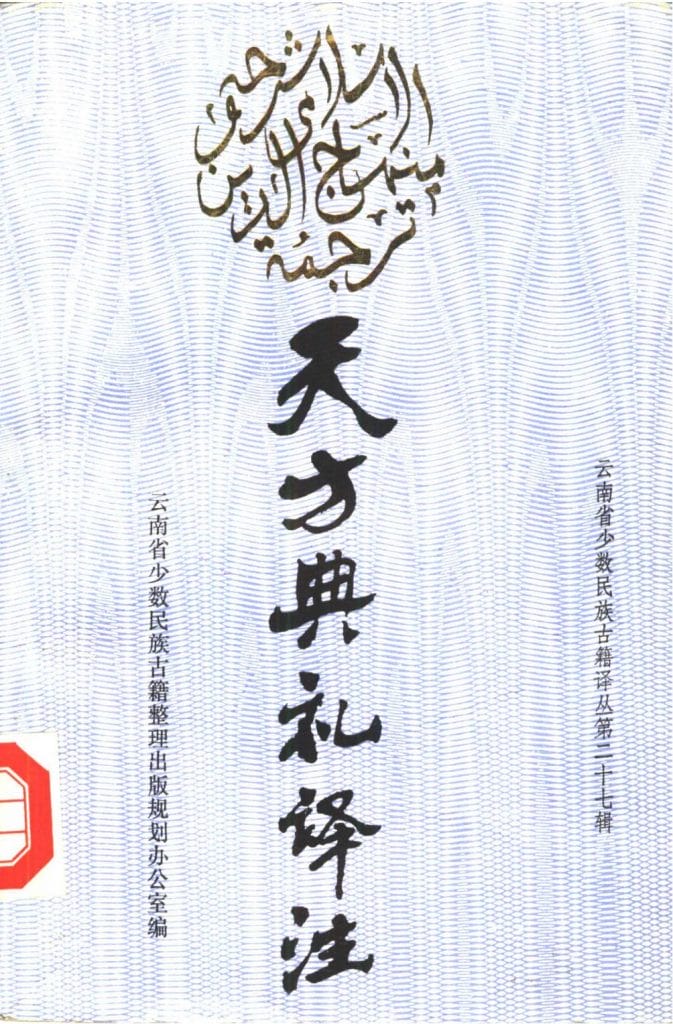 ترجمة
منهاج الدين
الإسلامي
天方典礼译注
云南省少数民族古籍译丛第二十七辑
云南省少数民族古籍整理出版规划办公室编